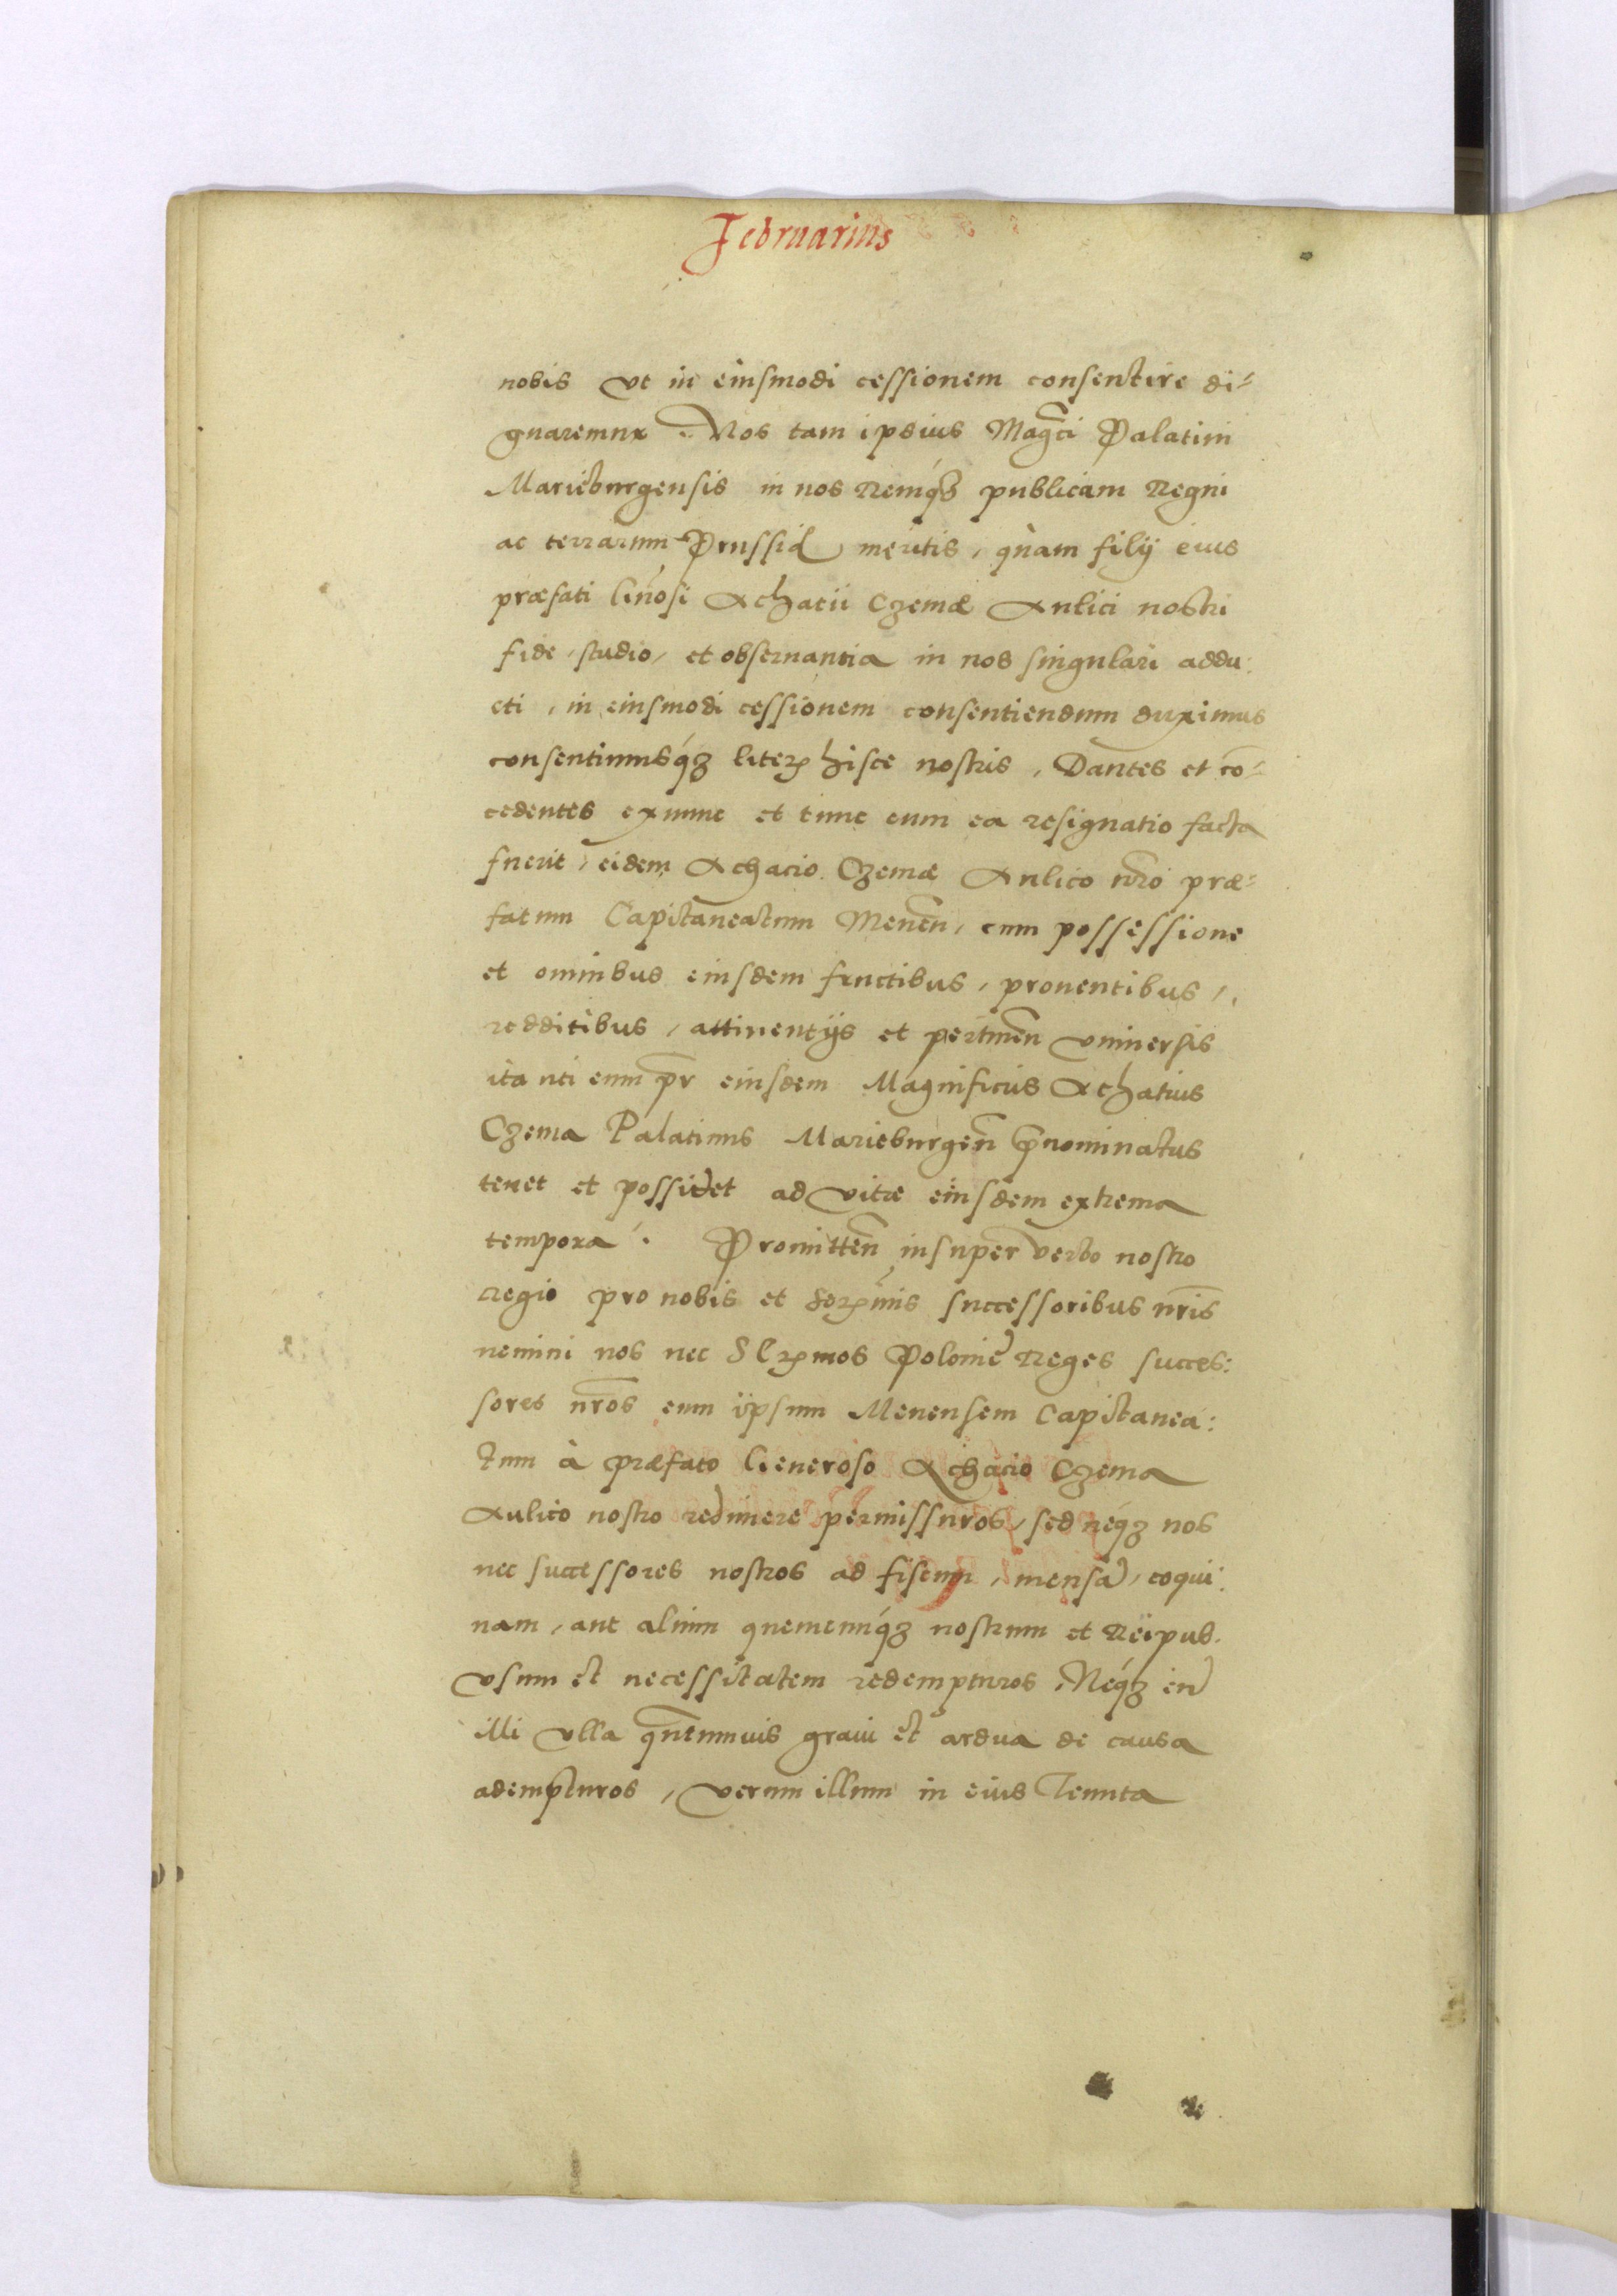 Februarius
nobis vt in eiusmodi cessionem consentire di-
gnaremur. Nos tam ipsius Magci Palatini
Marieburgensis in nos Remq́ʒ publicam Regni
ac terrarum Prussiæ meritis, quàm filij eius
præfati Gnosi Achatii Czemæ Aulici nostri
fide, studio, et obseruantia in nos singulari addu:
cti, in eiusmodi cessionem consentiendum duximus
consentimusq́ʒ literꝭ hisce nostris, Dantes et cō-
cedentes exnunc et tunc cum ea resignatio facta
fuerit, eidem Achacio Czemæ Aulico nr̄o præ-
fatum Capitaneatum Menen̄, cum possessione
et omnibus eiusdem fructibus, prouentibus,
redditibus, attinentijs et pertinen̄ vniuersis
ita uti eum pr̄ eiusdem Magnificus Achatius
Czema Palatinus Marieburgen̄ p̄nominatus
tenet et possidet ad vitæ eiusdem extrema
tempora. Promitten̄ insuper verbo nostro
regio pro nobis et Serꝭmis successoribus nr̄is
nemini nos nec Slrꝭmos Polonię Reges succes:
sores nr̄os eum ipsum Menensem Capitanea:
tum à præfato Generoso Achacio Czema
Aulico nostro redimere permissuros, sed neqʒ nos
nec successores nostros ad fiscum, mensā, coqui:
nam, aut alium quemcunq́ʒ nostrum et Reipub.
vsum et necessitatem redempturos, Néqʒ eū
illi vlla quātumuis graui et ardua de causa
adempturos, verum illum in eius Tenuta